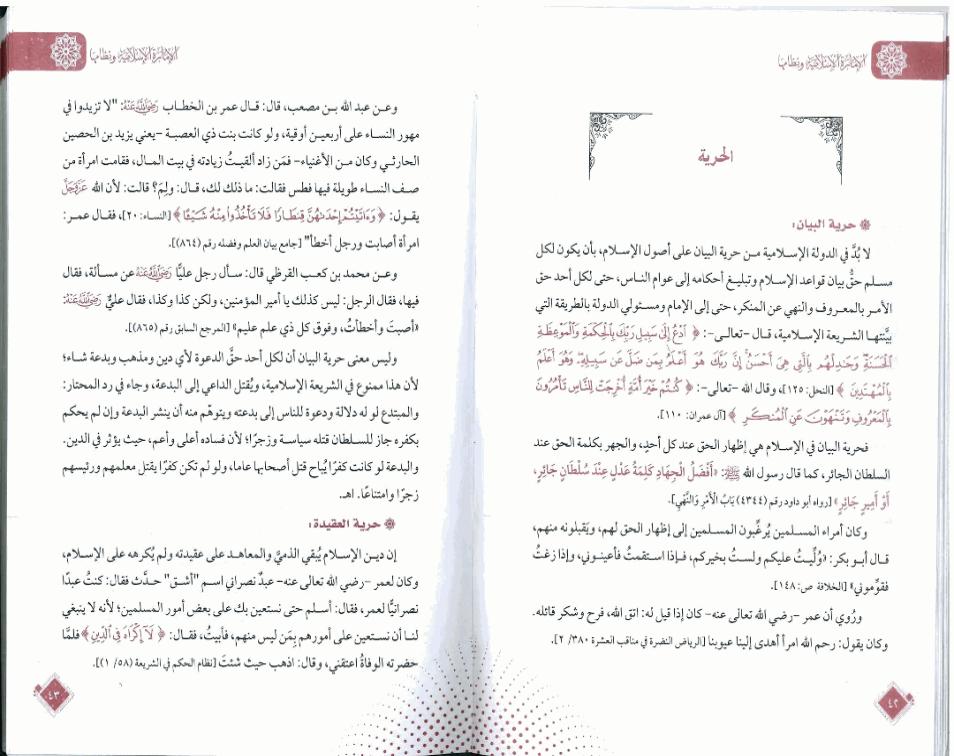 الإمارة الإسلامية ونظامها
الحرية
حرية البيان:
لا بُدَّ في الدولة الإسلامية من حرية البيان على أصول الإسلام، بأن يكون لكل
مسلم حقُّ بيان قواعد الإسلام وتبليغ أحكامه إلى عوام الناس، حتى لكل أحد حق
الأمر بالمعروف والنهي عن المنكر، حتى إلى الإمام ومسئولي الدولة بالطريقة التي
بيَّنتها الشريعة الإسلامية، قال –تعالى–: ﴿ ٱدۡعُ إِلَىٰ سَبِيلِ رَبِّكَ بِٱلۡحِكۡمَةِ وَٱلۡمَوۡعِظَةِ
ٱلۡحَسَنَةِۖ وَجَٰدِلۡهُم بِٱلَّتِي هِيَ أَحۡسَنُۚ إِنَّ رَبَّكَ هُوَ أَعۡلَمُ بِمَن ضَلَّ عَن سَبِيلِهِۦ وَهُوَ أَعۡلَمُ
بِٱلۡمُهۡتَدِينَ ﴾ [النحل: ١٢٥]، وقال الله –تعالى–: ﴿ كُنتُمۡ خَيۡرَ أُمَّةٍ أُخۡرِجَتۡ لِلنَّاسِ تَأۡمُرُونَ
بِٱلۡمَعۡرُوفِ وَتَنۡهَوۡنَ عَنِ ٱلۡمُنكَرِ ﴾ [آل عمران: ١١٠].
فحرية البيان في الإسلام هي إظهار الحق عند كل أحدٍ، والجهر بكلمة الحق عند
السلطان الجائر، كما قال رسول الله ﷺ: «أَفْضَلُ الْجِهَادِ كَلِمَةُ عَدْلٍ عِنْدَ سُلْطَانٍ جَائِرٍ،
أَوْ أَمِيرٍ جَائِرٍ» [رواه أبو داود رقم (٤٣٤٤) بَابُ الْأَمْرِ وَالنَّهْيِ].
وكان أمراء المسلمين يُرغِّبون المسلمين إلى إظهار الحق لهم، ويَقبلونه منهم،
قال أبو بكر: «وُلِّيتُ عليكم ولستُ بخيركم، فإذا استقمتُ فأعينوني، وإذا زغتُ
فقوِّموني» [الخلافة ص: ١٤٨].
ورُوي أن عمر –رضي الله تعالى عنه– كان إذا قيل له: اتق الله، فرح وشكر قائله.
وكان يقول: رحم الله امرأ أهدى إلينا عيوبنا [الرياض النضرة في مناقب العشرة ٣٨٠/ ٢].
٤٢
الإمارة الإسلامية ونظامها
وعن عبد الله بن مصعب، قال: قال عمر بن الخطاب رَضِيَ اللَّهُ عَنْهُ: "لا تزيدوا في
مهور النساء على أربعين أوقية، ولو كانت بنت ذي العصبة –يعني يزيد بن الحصين
الحارثي وكان من الأغنياء– فمَن زاد ألقيتُ زيادته في بيت المال، فقامت امرأة من
صف النساء طويلة فيها فطس فقالت: ما ذلك لك، قال: ولِمَ؟ قالت: لأن الله عَزَّوَجَلَّ
يقول: ﴿ وَءَاتَيۡتُمۡ إِحۡدَىٰهُنَّ قِنطَارٗا فَلَا تَأۡخُذُواْ مِنۡهُ شَيۡـًٔا ﴾ [النساء: ٢٠]، فقال عمر:
امرأة أصابت ورجل أخطأ" [جامع بيان العلم وفضله رقم (٨٦٤)].
وعن محمد بن كعب القرظي قال: سأل رجل عليًّا رَضِيَ اللَّهُ عَنْهُ عن مسألة، فقال
فيها، فقال الرجل: ليس كذلك يا أمير المؤمنين، ولكن كذا وكذا، فقال عليٌّ رَضِيَ اللَّهُ عَنْهُ:
«أصبتَ وأخطأتُ، وفوق كل ذي علم عليم» [المرجع السابق رقم (٨٦٥)].
وليس معنى حرية البيان أن لكل أحد حقَّ الدعوة لأي دين ومذهب وبدعة شاء؛
لأن هذا ممنوع في الشريعة الإسلامية، ويُقتل الداعي إلى البدعة، وجاء في رد المحتار:
والمبتدع لو له دلالة ودعوة للناس إلى بدعته ويتوهّم منه أن ينشر البدعة وإن لم يحكم
بكفره جاز للسلطان قتله سياسة وزجرًا؛ لأن فساده أعلى وأعم، حيث يؤثر في الدين.
والبدعة لو كانت كفرًا يُباح قتل أصحابها عاما، ولو لم تكن كفرًا يقتل معلمهم ورئيسهم
زجرًا وامتناعًا. اهـ.
حرية العقيدة:
إن دين الإسلام يُبقي الذميَّ والمعاهد على عقيدته ولم يُكرهه على الإسلام،
وكان لعمر –رضي الله تعالى عنه– عبدٌ نصراني اسم "أشق" حدَّث فقال: كنتُ عبدًا
نصرانيًّا لعمر، فقال: أسلم حتى نستعين بك على بعض أمور المسلمين؛ لأنه لا ينبغي
لنا أن نستعين على أمورهم بِمَن ليس منهم، فأبيتُ، فقال: ﴿ لَآ إِكۡرَاهَ فِي ٱلدِّينِ ﴾ فلمَّا
حضرته الوفاةُ اعتقني، وقال: اذهب حيث شئتَ [نظام الحكم في الشريعة (٥٨/ ١)].
٤٣